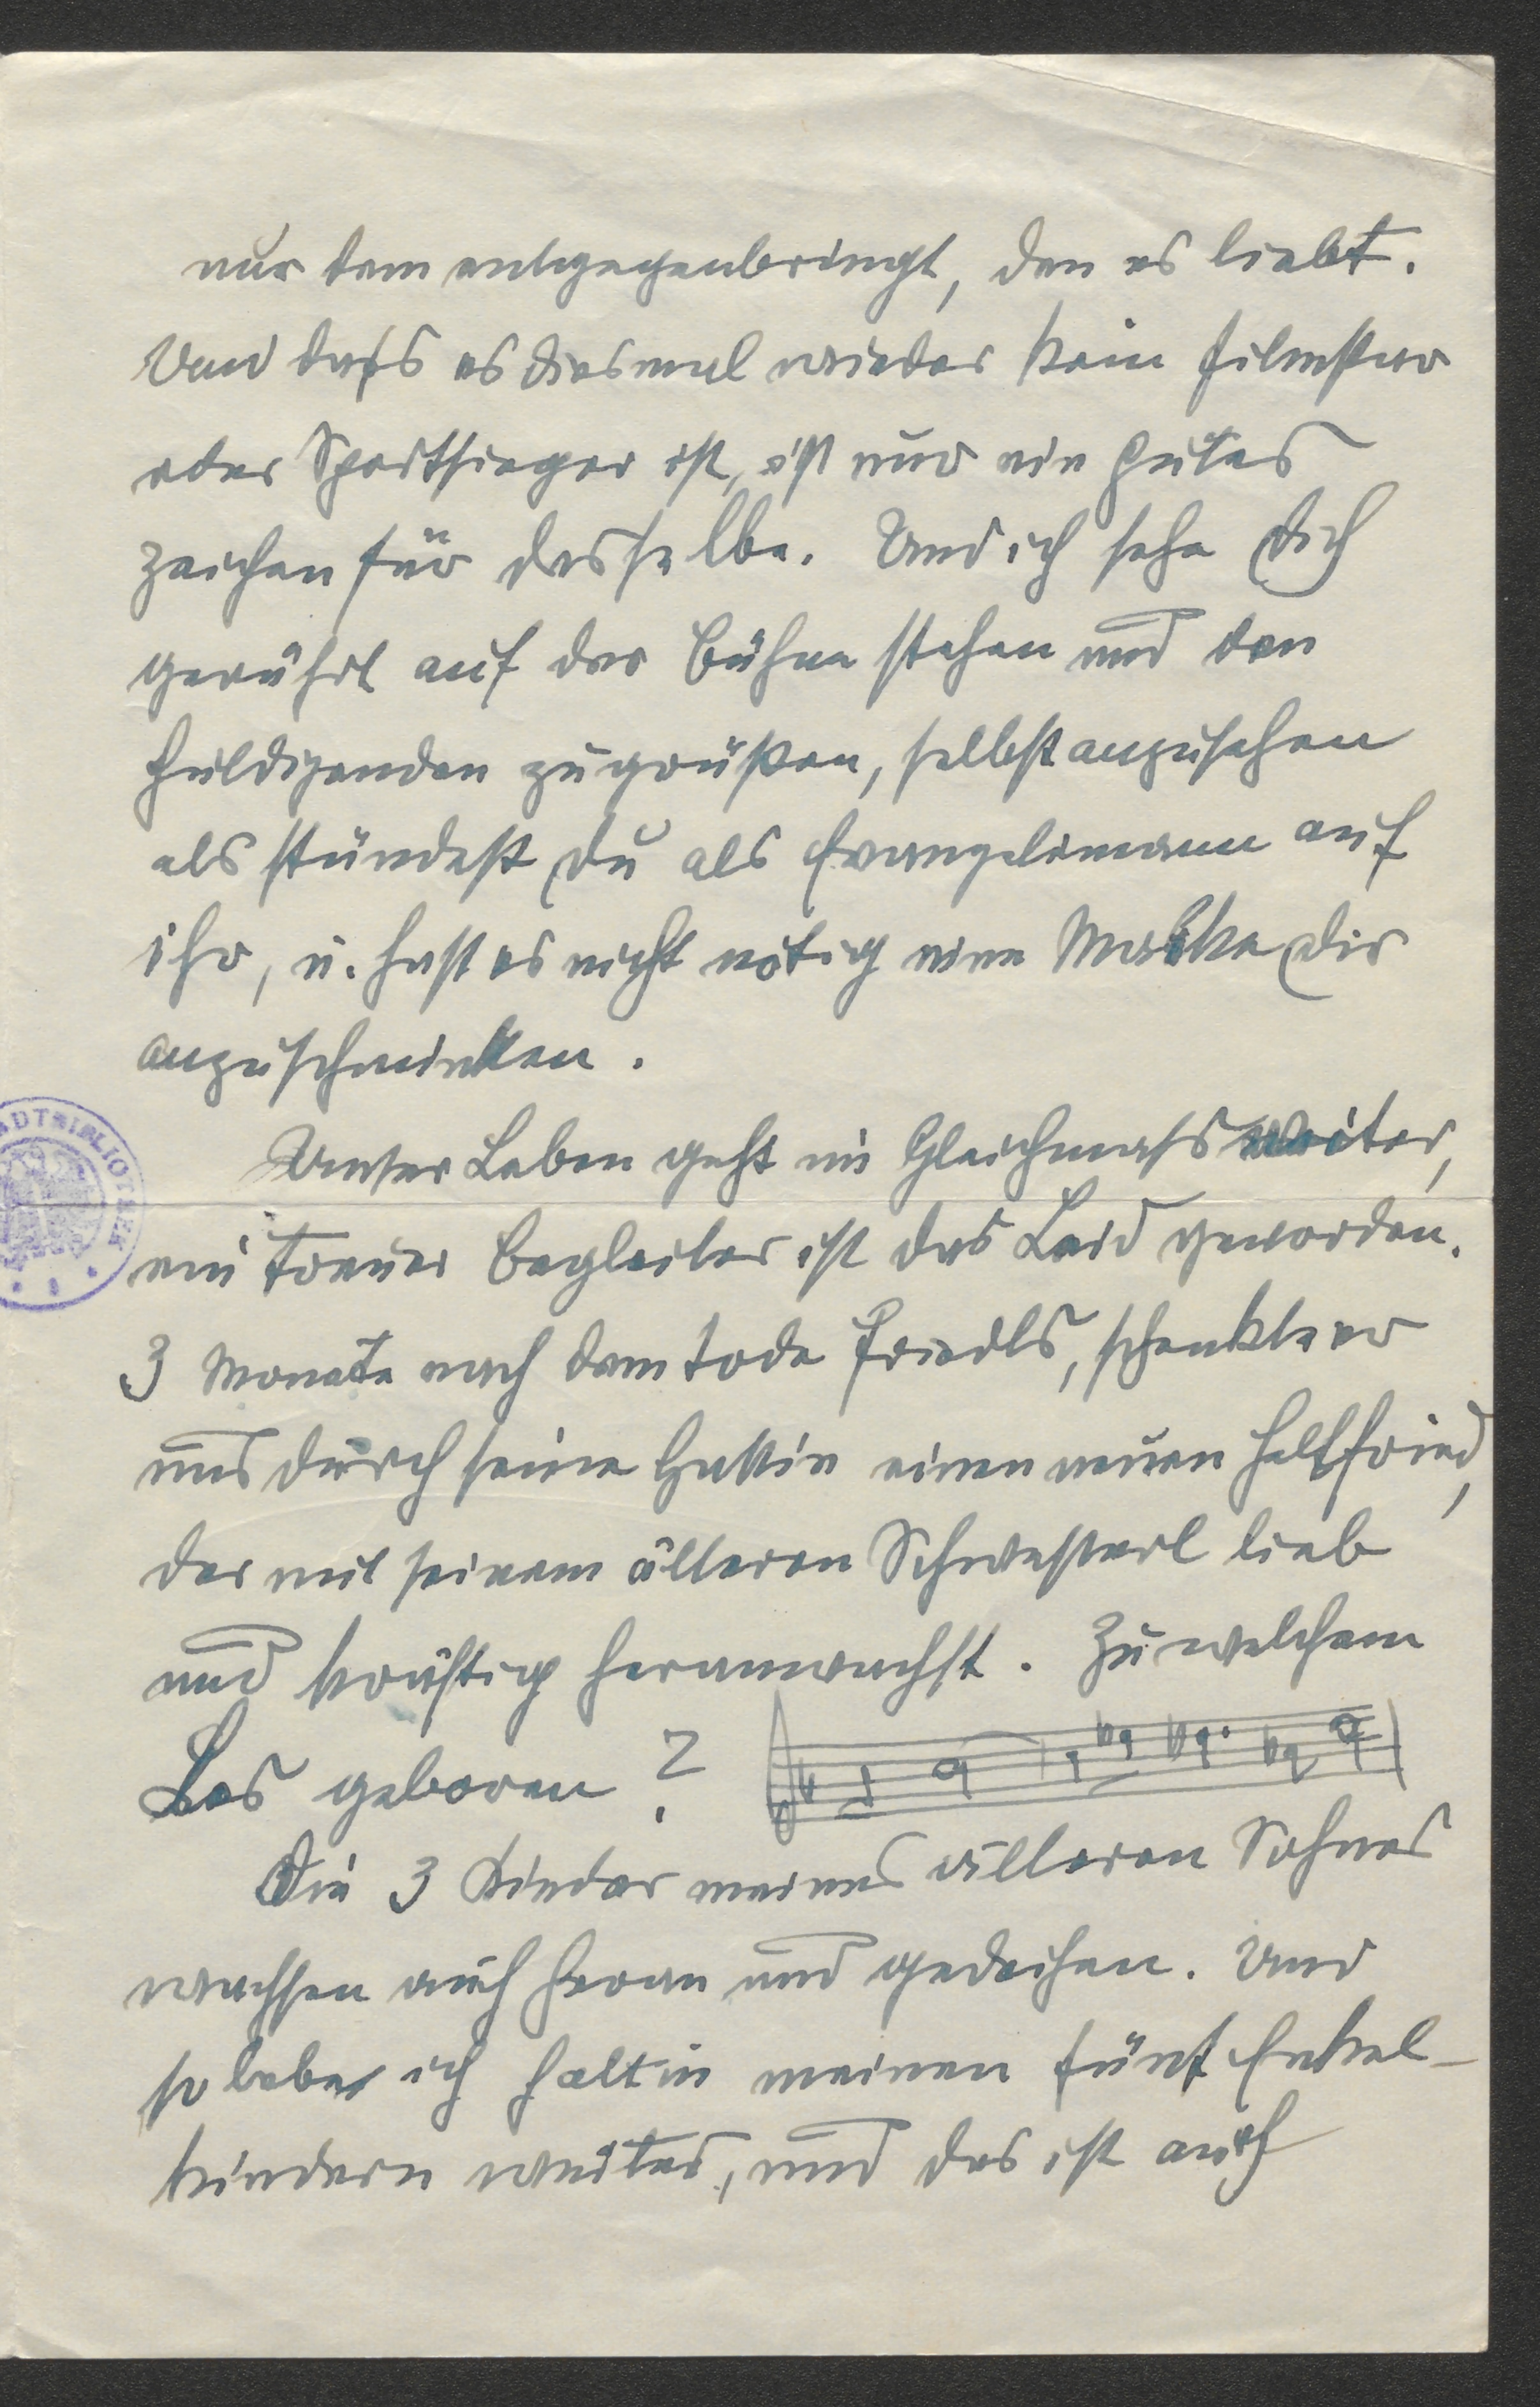 nur dem entgegenbringt, den es liebt.
Und dass es diesmal wieder kein Filmstar
oder Sportsieger ist, ist nur ein gutes
Zeichen für dasselbe. Und ich sehe Dich
gerührt auf der Bühne stehen und den
Huldigenden zugrüßen, selbst anzusehen
als stündest Du als Evangelimann auf
ihr, u. hast es nicht nötig eine Maske Dir
anzuschminken.
Unser Leben geht im Gleichmass weiter,
ein treuer Begleiter ist das Leid geworden.
3 Monate nach dem Tode Friedls, schenkte er
uns durch seine Gattin einen neuen Helffried,
der mit seinem älteren Schwesterl lieb
und kräftig heranwachst. Zu welchem
Los geboren?
Die 3 Kinder meines älteren Sohnes
wachsen auch heran und gedeihen. Und
so lebe ich halt in meinen fünf Enkel-
kindern weiter, und das ist auch
STADTBIBLIOTHEK